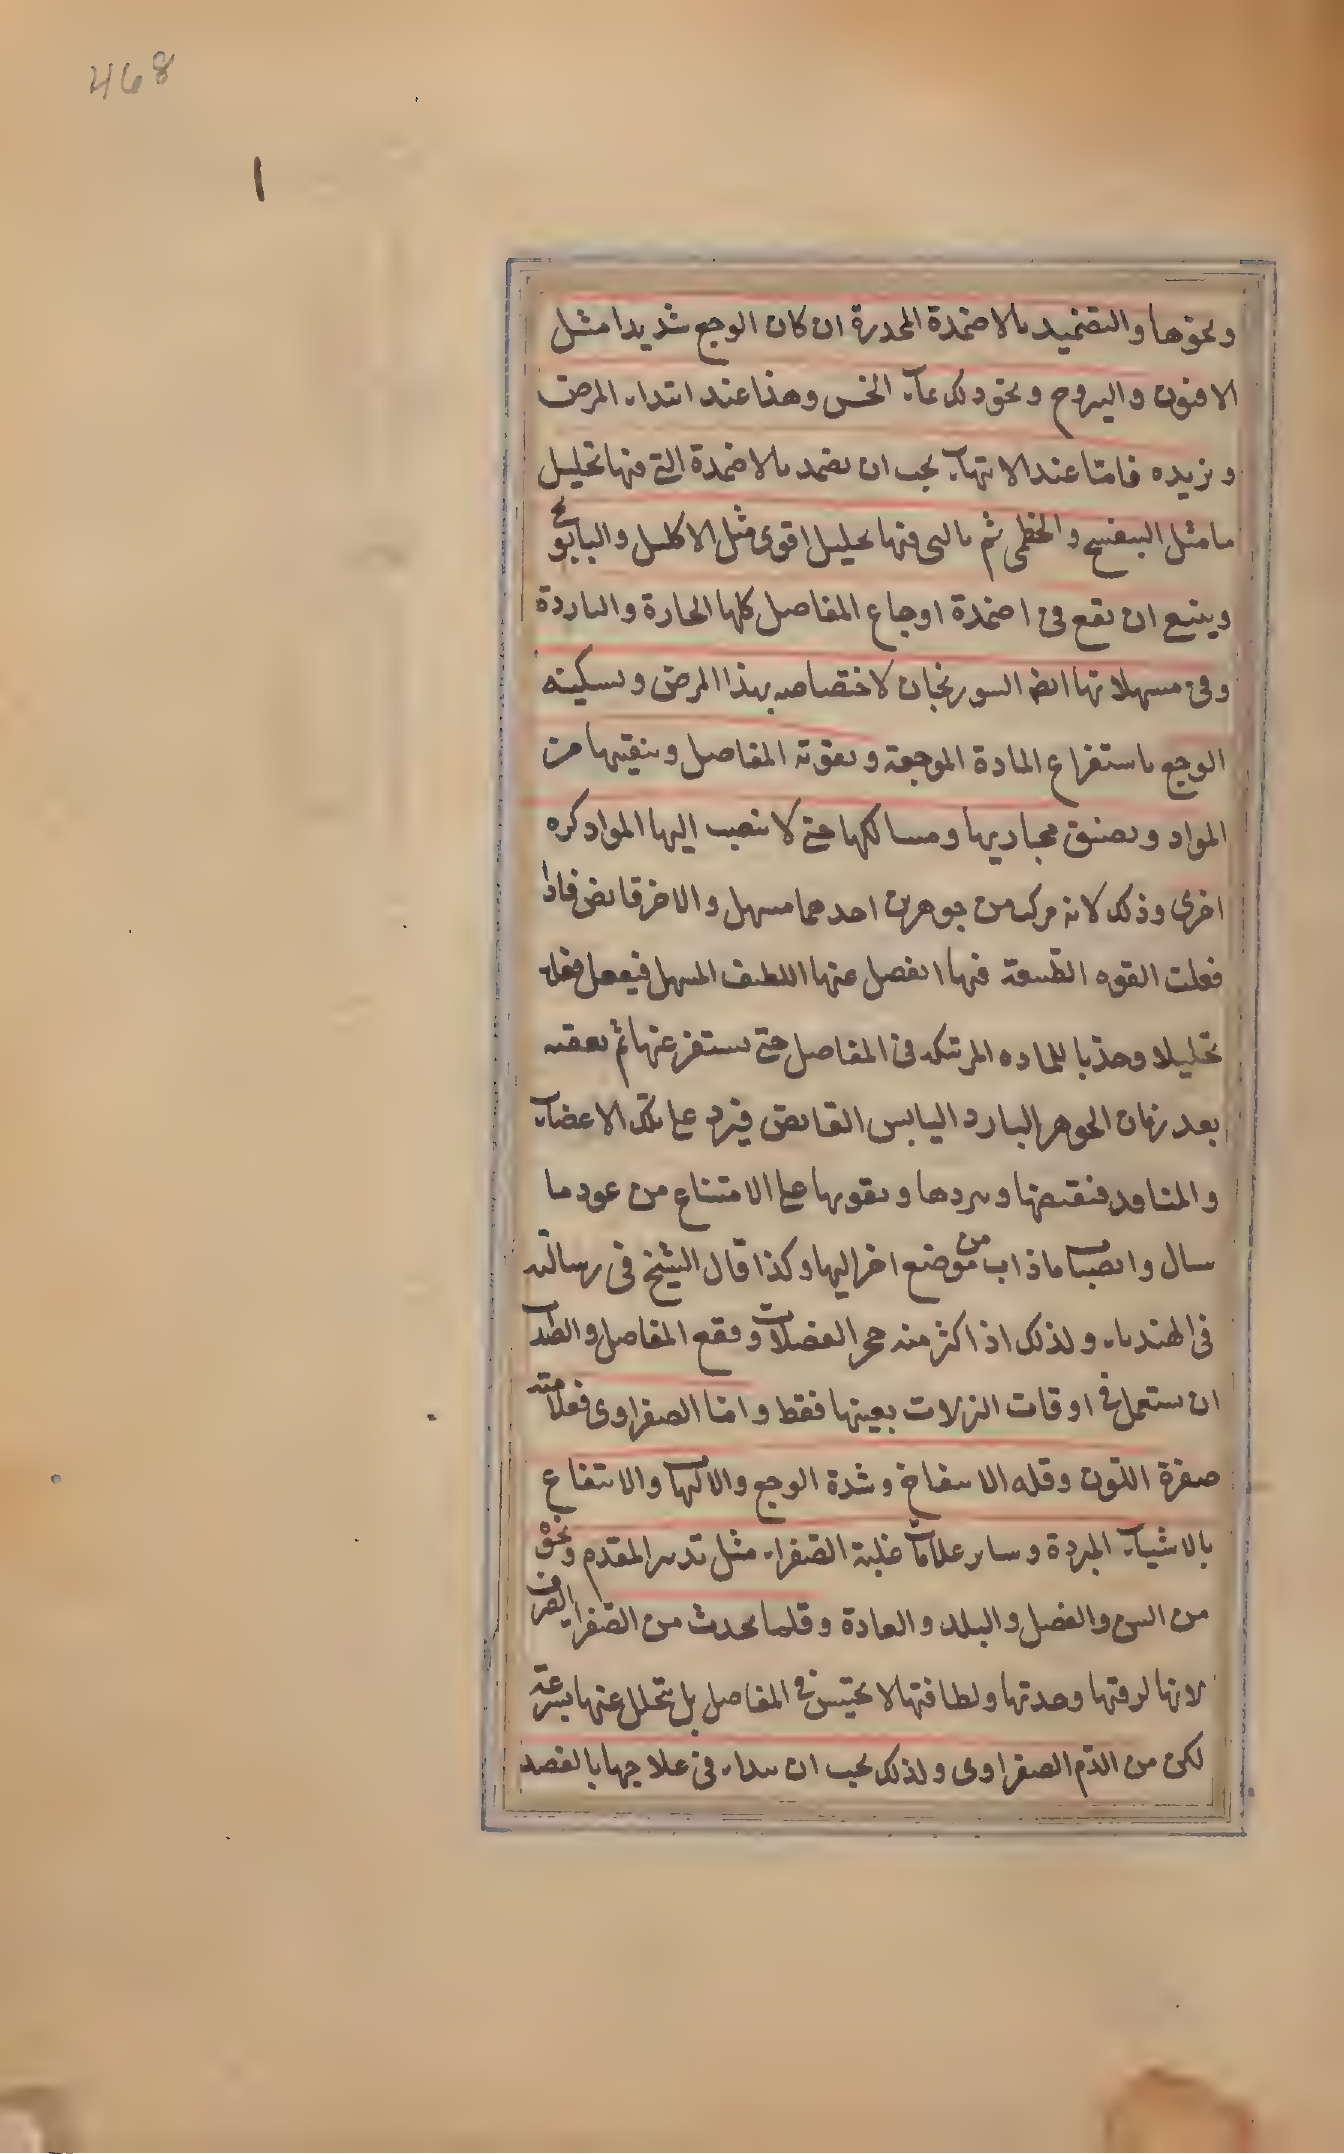 468
ونحوها والتضميد بالاضمدة المخدرة ان كان الوجع شديدا مثل
الافيون واليبروح ونحو ذلك بماء الخس وهذا عند ابتداء المرض
وتزيده فامّا عند الانتهاء يجب ان يضمد بالاضمدة التي فيها تحليل
ما مثل البنفسج والخطمى ثم بالتى فيها تحليل اقوى مثل الاكليل والبابونج
وينبغ ان يقع في اضمدة اوجاع المفاصل كلها الحارة والباردة
وفي مسهلاتها ايضا السورنجان لاختصاصه بهذا المرض وتسكينه
الوجع باستفراغ المادة الموجعة وتقوية المفاصل وتنقيتها من
المواد وتضييق مجاريها ومسالكها حتى لا تنصب اليها المواد كره
اخرى وذلك لانه مركب من جوهرين احدهما مسهل والاخر قابض فاذا
فعلت القوه الطبيعة فيها انفصل عنها اللطيف المسهل فيفعل فعله
تحليلا وجذبا للماده المرتبكه في المفاصل حتى يستفرغ عنها ثم يعقبه
بعد زمان الجوهر البارد اليابس القابض فيرد على تلك الاعضاء
والمنافذ فيقبضها ويبردها ويقويها على الامتناع من عود ما
سال وانصباب ما ذاب من موضع اخر اليها وكذا قال الشيخ في رسالته
في الهندباء ولذلك اذا كثر منه حجر العضلات وفقع المفاصل والصواب
ان يستعمل في اوقات النزلات بعينها فقط وامّا الصفراوى فعلامته
صفرة اللون وقله الانتفاخ وشدة الوجع والالتهاب والانتفاع
بالاشياء المبردة وساير علامات غلبة الصفراء مثل تدبير المقدم ونحوه
من السن والفصل والبلد والعادة وقلما يحدث من الصفراء الصرف
لانها لرقتها وحدتها ولطافتها لا تحتبس في المفاصل بل يتحلل عنها بسرعة
لكن من الدّم الصفراوى ولذلك يجب ان يبداء في علاجها بالفصد